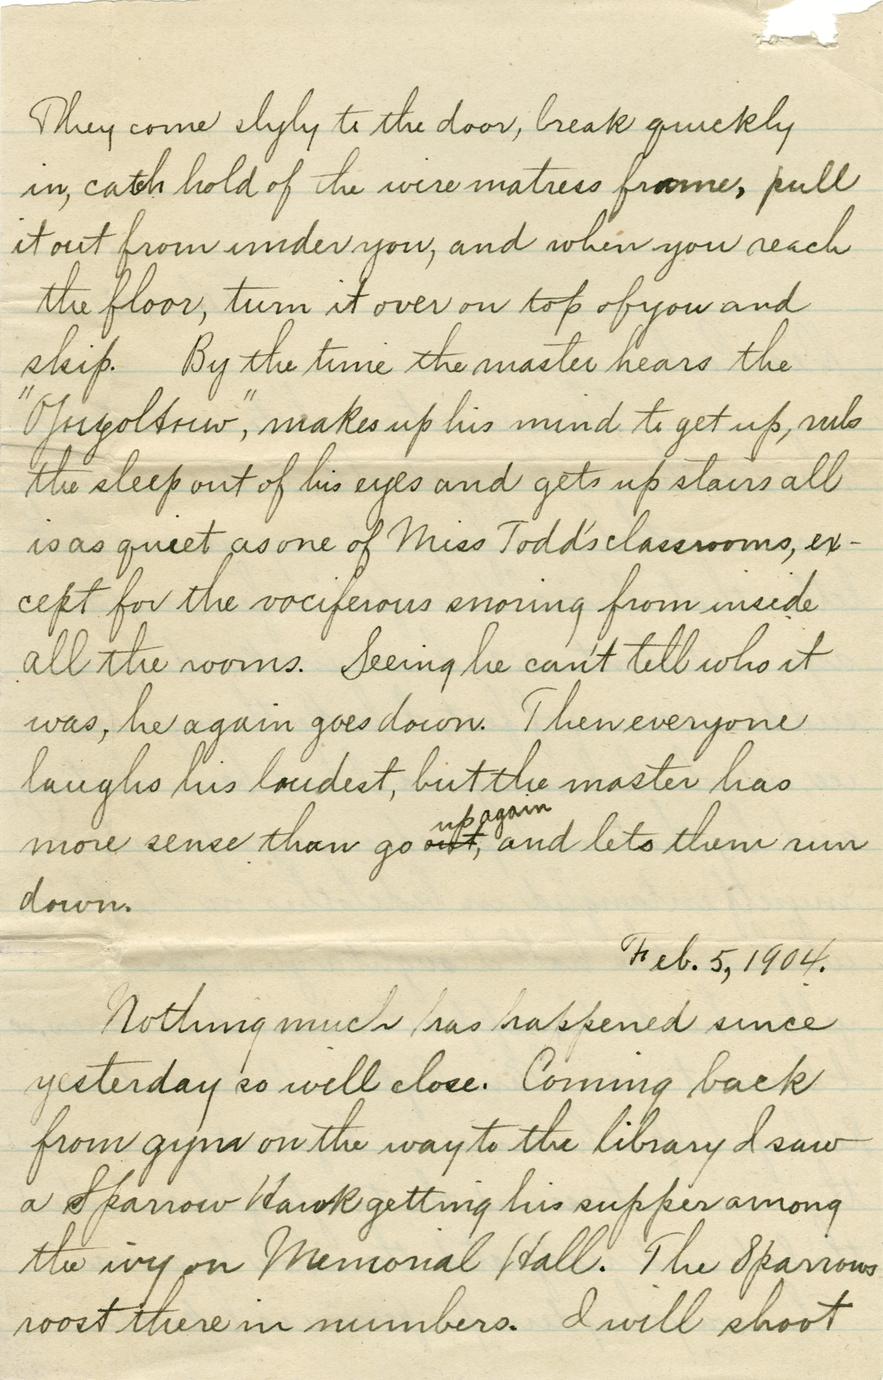 They come slyly to the door, break quickly
in, catch hold of the wire matress frame, pull
it out from under you, and when you reach
the floor, turn it over on top of you and
skip. By the time the master hears the
makes up his mind to get up, rubs
the sleep out of his eyes and gets up stairs all
is as quiet as one of Miss Todd's classrooms, ex-
cept for the vociferous snoring from inside
all the rooms. Seeing he can't tell who it
was, he again goes down. Then everyone
laughs his loudest, but the master has
up again
more sense than go out, and lets them run
down.
Feb. 5, 1904.
Nothing much has happened since
yesterday so will close. Coming back
from gym on the way to the library I saw
a Sparrow Hawk getting his supper among
the ivy on Memorial Hall. The Sparrows
roost there in numbers. I will shoot